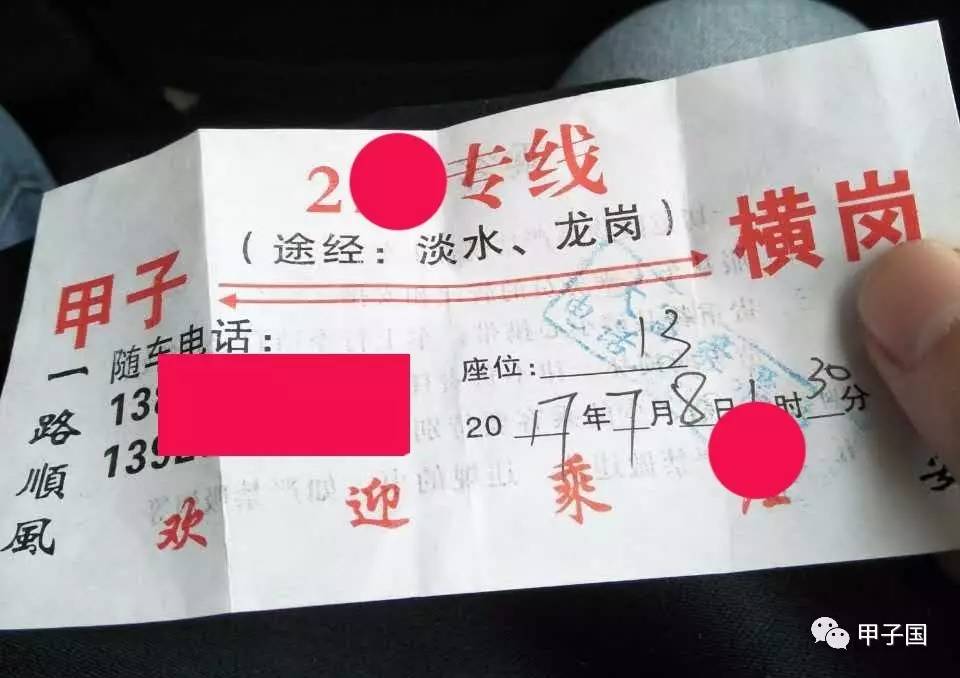 2 专线
（途经：淡水、龙岗）
甲子
横岗
随车电话：
13
139
座位：13
2017年7月8日 时30分
一路順風
欢迎乘
甲子国